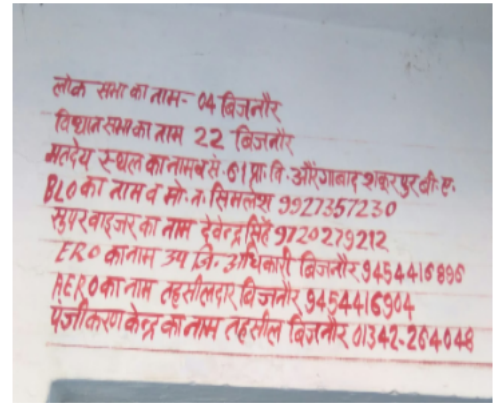 लोक सभा का नाम- 04 बिजनौर
विधान सभा का नाम 22 बिजनौर
मतदेय स्थल का नाम व सं. 61 प्रा. वि. औरंगाबाद शकूरपुर बी.ए.
BLO का नाम व मो. न. सिमलेश 9927357230
सुपरवाइजर का नाम देवेन्द्र सिंह 9720279212
ERO का नाम उप जि. अधिकारी बिजनौर 9454416896
AERO का नाम तहसीलदार बिजनौर 9454416904
पंजीकरण केन्द्र का नाम तहसील बिजनौर 01342-264048